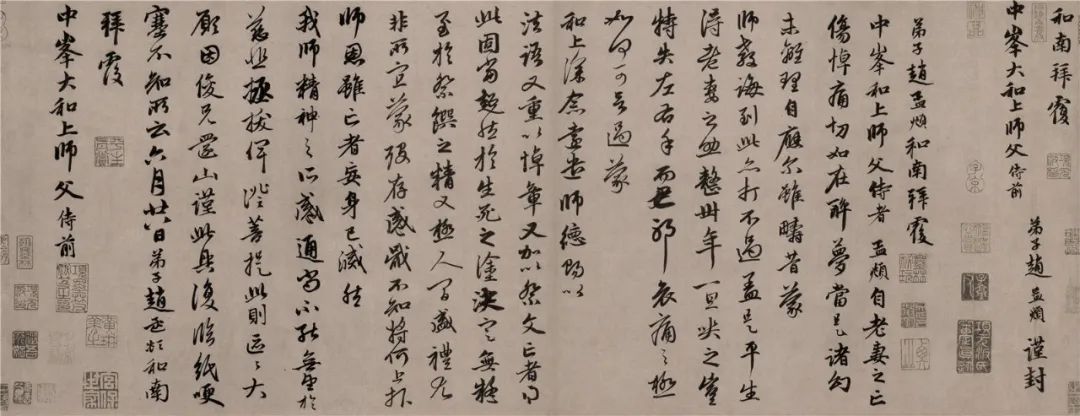 和南拜覆
中峯大和上師父侍前
弟子趙孟頫謹封
弟子趙孟頫和南拜覆
中峯和上師父侍者孟頫自老妻之亡
傷悼痛切如在醉夢當是諸幻
未離理自應爾雖疇昔蒙
師教誨到此亦打不過蓋是平生
得老妻之助整卅年一旦哭之豈
特失左右手而已耶哀痛之極
如何可言過蒙
和上深念遠遣師德賜以
法語又重以悼章又加以祭文亡者得
此固當超然於生死之塗決定無疑
至於祭饌之精又極人間盛禮尤
非所宜蒙歿存感戢不知將何上報
師恩雖亡者妄身已滅然
我師精神之所感通尚不能無望於
慈悲拯拔俾證菩提此則區區大
願因俊兄還山謹此具復臨紙哽
塞不知所云六月廿八日弟子趙孟頫和南
拜覆
中峯大和上師父侍前